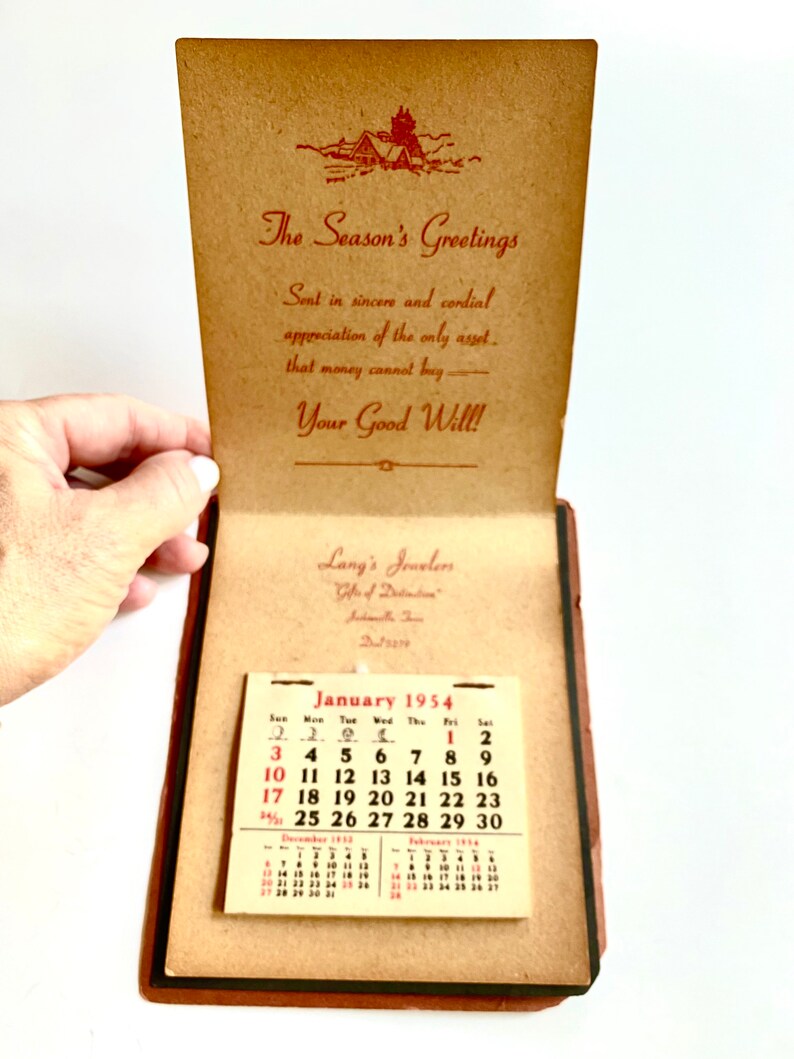 The Season's Greetings
Sent in sincere and cordial
appreciation of the only asset
that money cannot buy
Your Good Will!
Lang's Jewelers
"Gifts of Distinction"
Jacksonville, Texas
Dial 5279
January 1954
Sun Mon Tue Wed Thu Fri Sat
1 2
3 4 5 6 7 8 9
10 11 12 13 14 15 16
17 18 19 20 21 22 23
24/31 25 26 27 28 29 30
December 1953
1 2 3 4 5
6 7 8 9 10 11 12
13 14 15 16 17 18 19
20 21 22 23 24 25 26
27 28 29 30 31
February 1954
1 2 3 4 5 6
7 8 9 10 11 12 13
14 15 16 17 18 19 20
21 22 23 24 25 26 27
28